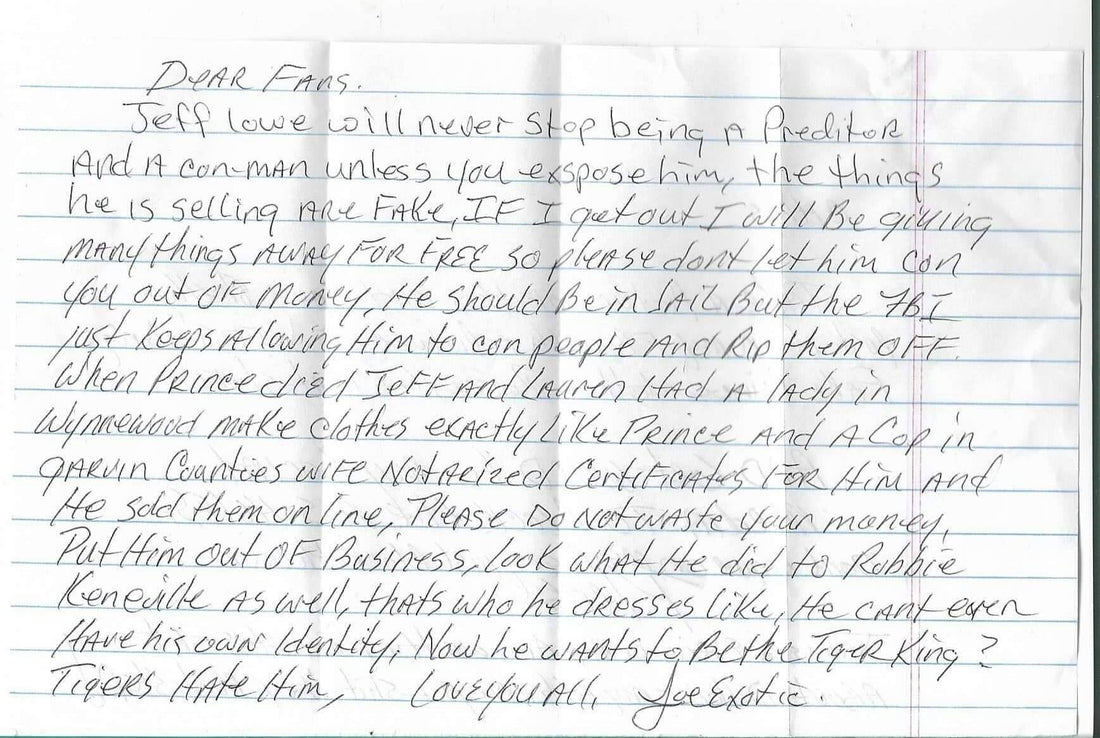 Dear Fans.
Jeff lowe will never stop being A Preditor
And A con-man unless you exspose him, the things
he is selling ARE FAKe, IF I get out I will Be giving
many things AWAY FOR FREE so please dont let him con
you out OF money, He should Be in JAil But the FBI
just Keeps Allowing Him to con people And Rip them OFF.
When Prince died JeFF And LAuren HAd A lAdy in
Wynnewood mAKe clothes exActly like Prince And A Cop in
gARvin Counties wiFe NotArized CertiFicAtes FOR Him And
He sold them on line, PleAse Do Not wAste your money,
Put Him out OF Business, look whAt He did to Robbie
Keneville As well, thAts who he dresses like, He cAnt even
HAve his own Identity, Now he wAnts to Be the TigeR King?
TigeRs HAte Him, Love you All, Joe Exotic.